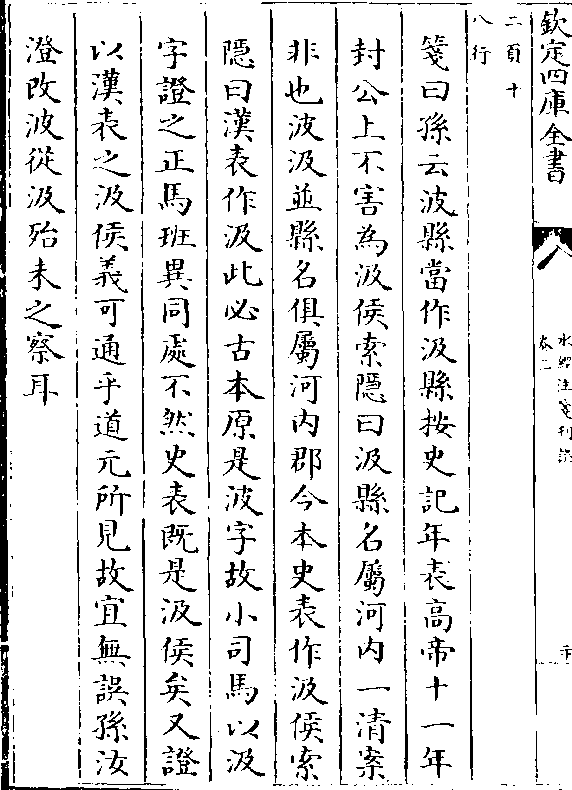 欽定四庫全書
水經注箋刊誤
卷二
二頁十
八行
箋曰孫云波縣當作汲縣按史記年表高帝十一年
封公上不害為汲侯索隱曰汲縣名屬河内一清案
非也波汲並縣名俱屬河内郡今本史表作汲侯索
隱曰漢表作汲此必古本原是波字故小司馬以汲
字證之正馬班異同處不然史表既是汲侯矣又證
以漢表之汲侯義可通乎道元所見故宜無誤孫汝
澄改波從汲殆未之察耳